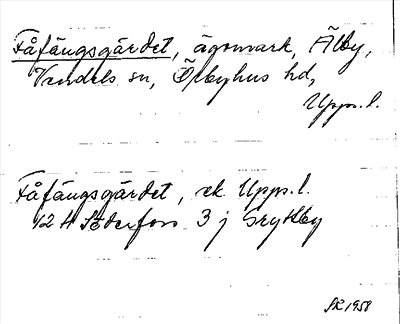 Fåfängsgärdet, ägomark, Älby,
Vendels sn, Örbyhus hd,
Upps. l.
Fåfängsgärdet, ek Upps. l.
12 H Söderfors 3 j Gryttby
1958